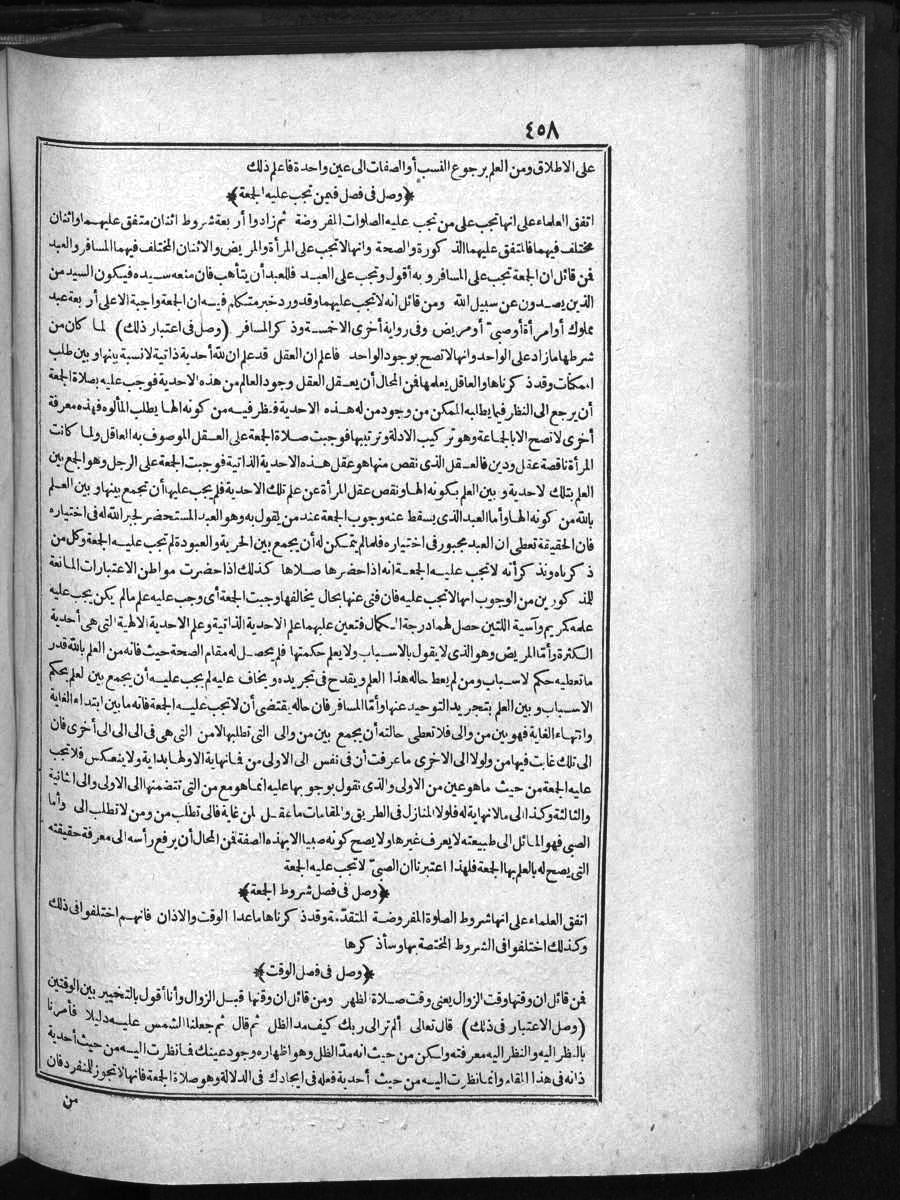 ٤٥٨
على الاطلاق ومن العلم برجوع النسب أو الصفات الى عين واحدة فاعلم ذلك
﴿وصل فى فصل فيمن تجب عليه الجمعة﴾
اتفق العلماء على انها تجب على من تجب عليه الصلوات المفروضة ثم زادوا أربعة شروط اثنان متفق عليهما واثنان
مختلف فيهما فالمتفق عليهما الذكورة والصحة وانها لا تجب على المرأة والمريض والاثنان المختلف فيهما المسافر والعبد
فمن قائل ان الجمعة تجب على المسافر وبه أقول وتجب على العبد فللعبد أن يتأهب فان منعه سيده فيكون السيد من
الذين يصدون عن سبيل الله ومن قائل انه لا تجب عليهما وقد ورد خبر متكلم فيه ان الجمعة واجبة الا على أربعة عبد
مملوك أو امرأة أو صبىّ أو مريض وفى رواية أخرى الا خمسة وذكر المسافر (وصل فى اعتبار ذلك) لما كان من
شرطها ما زاد على الواحد وانها لا تصح بوجود الواحد فاعلم ان العقل قد علم ان لله أحدية ذاتية لا نسبة بينها وبين طلب
الممكنات وقد ذكرناها والعاقل يعلمها فمن المحال أن يعقل العقل وجود العالم من هذه الاحدية فوجب عليه بصلاة الجمعة
أن يرجع الى النظر فيما يطلبه الممكن من وجود من له هذه الاحدية فنظر فيه من كونه الها يطلب المألوه فهذه معرفة
أخرى لا تصح الا بالجماعة وهو تركيب الادلة وترتيبها فوجبت صلاة الجمعة على العقل الموصوف به العاقل ولما كانت
المرأة ناقصة عقل ودين فالعقل الذى نقص منها هو عقل هذه الاحدية الذاتية فوجبت الجمعة على الرجل وهو الجمع بين
العلم بتلك الاحدية وبين العلم بكونه الها ونقص عقل المرأة عن علم تلك الاحدية فلم يجب عليها أن تجمع بينها وبين العلم
بالله من كونه الها وأما العبد الذى يسقط عنه وجوب الجمعة عند من يقول به وهو العبد المستحضر لجبر الله له فى اختياره
فان الحقيقة تعطى ان العبد مجبور فى اختياره فلما لم يتمكن له أن يجمع بين الحرية والعبودة لم تجب عليه الجمعة وكل من
ذكرناه ونذكر أنه لا تجب عليه الجمعة انه اذا حضرها صلاها كذلك اذا حضرت مواطن الاعتبارات المانعة
للمذكورين من الوجوب انها لا تجب عليه فان فنى عنها بحال يخالفها وجبت الجمعة أى وجب عليه علم ما لم يكن يجب عليه
علمه كمريم وآسية اللتين حصل لهما درجة الكمال فتعين عليهما علم الاحدية الذاتية وعلم الاحدية الالهية التى هى أحدية
الكثرة وأمّا المريض وهو الذى لا يقول بالاسباب ولا يعلم حكمتها فلم يحصل له مقام الصحة حيث فاته من العلم بالله قدر
ما تعطيه حكم الاسباب ومن لم يعط حاله هذا العلم ويقدح فى تجريده ويخاف عليه لم يجب عليه أن يجمع بين العلم بحكم
الاسباب وبين العلم بتجريد التوحيد عنها وأمّا المسافر فان حاله يقتضى أن لا تجب عليه الجمعة فانه ما بين ابتداء الغاية
وانتهاء الغاية فهو بين من والى فلا تعطى حالته أن يجمع بين من والى التى تطلبها الا من التى هى فى الى الى أخرى فان
الى تلك غابت فيها من ولولا الى الاخرى ما عرفت أن فى نفس الى الاولى من فمانهاية الا ولها بداية ولا ينعكس فلا تجب
عليه الجمعة من حيث ما هو عين من الاولى والذى نقول بوجوبها عليه انما هو مع من التى تتضمنها الى الاولى والى الثانية
والثالثة وكذا الى ما لا نهاية له فلولا المنازل فى الطريق والمقامات ما عقل لمن غاية فالى تطلب من ومن لا تطلب الى وأما
الصبى فهو المائل الى طبيعته لا يعرف غيرها ولا يصح كونه صبيا الا بهذه الصفة فمن المحال أن يرفع رأسه الى معرفة حقيقته
التى يصح له بالعلم بها الجمعة فلهذا اعتبرنا ان الصبىّ لا تجب عليه الجمعة
﴿وصل فى فصل شروط الجمعة﴾
اتفق العلماء على انها شروط الصلوة المفروضة المتقدّمة وقد ذكرناها ما عدا الوقت والاذان فانهم اختلفوا فى ذلك
وكذلك اختلفوا فى الشروط المختصة بها وسأذكرها
﴿وصل فى فصل الوقت﴾
فمن قائل ان وقتها وقت الزوال يعنى وقت صلاة الظهر ومن قائل ان وقتها قبل الزوال وأنا أقول بالتخيير بين الوقتين
(وصل الاعتبار فى ذلك) قال تعالى ألم تر الى ربك كيف مد الظل ثم قال ثم جعلنا الشمس عليه دليلا فأمرنا
بالنظر اليه والنظر اليه معرفته ولكن من حيث انه مدّ الظل وهو اظهاره وجود عينك فما نظرت اليه من حيث أحدية
ذاته فى هذا المقام وانما نظرت اليه من حيث أحدية فعله فى ايجادك فى الدلالة وهو صلاة الجمعة فانها لا تجوز للمنفرد فان
من